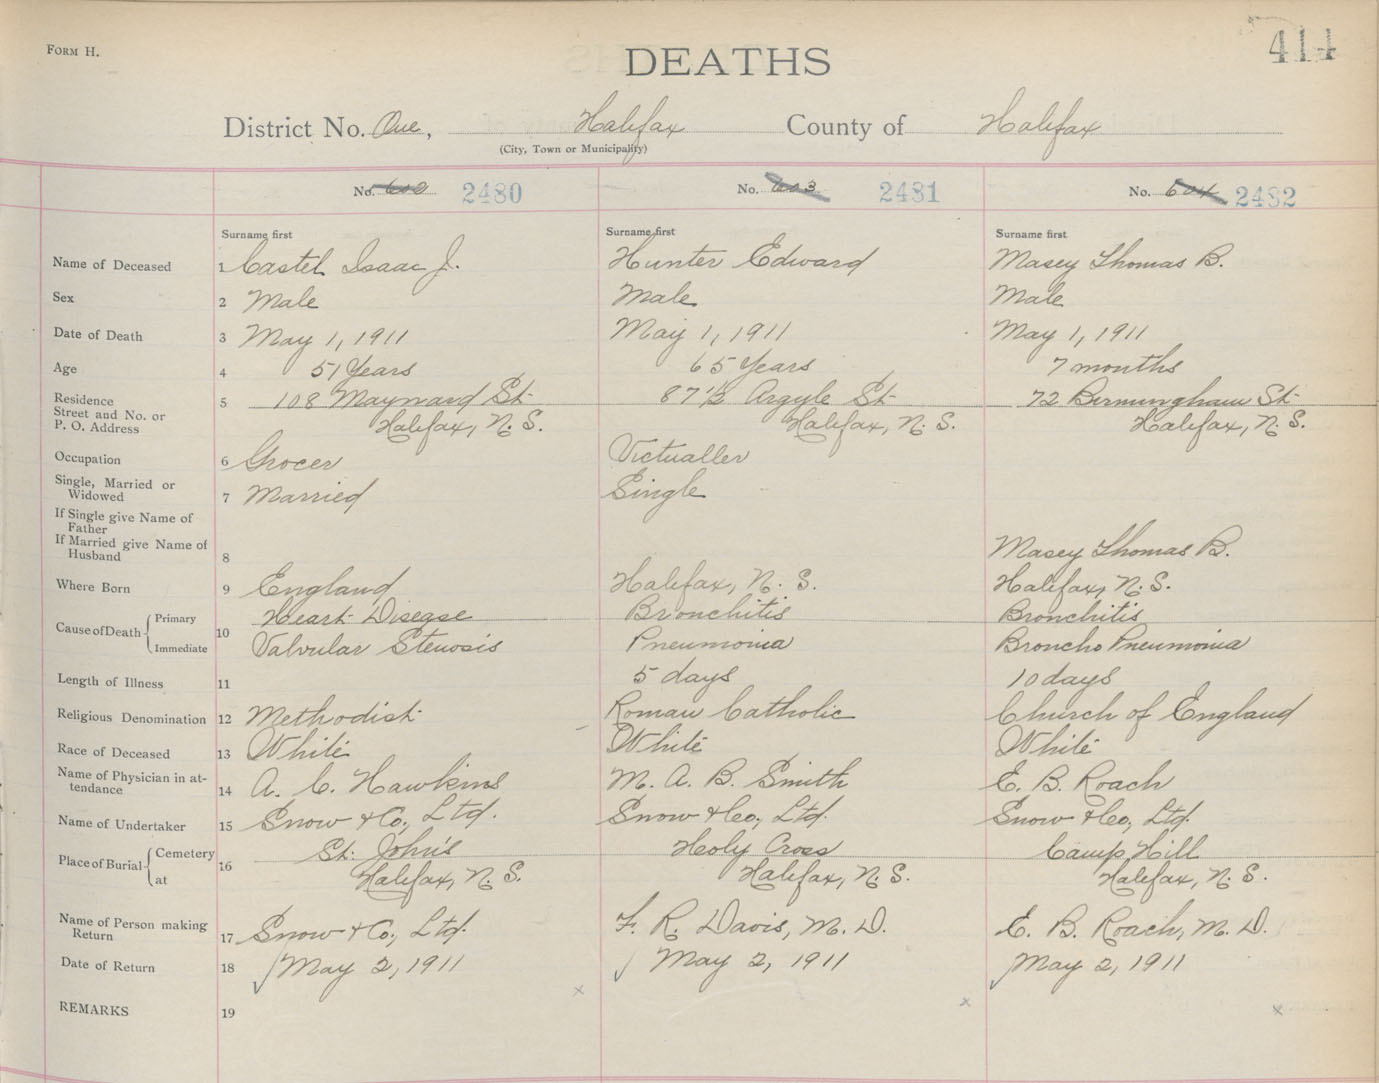 FORM H.
414
DEATHS
District No. One, Halifax County of Halifax
(City, Town or Municipality)
No. 602 2480 No. 603 2481 No. 604 2482
Surname first Surname first Surname first
Name of Deceased 1 Castel Isaac J. Hunter Edward Masey Thomas B.
Sex 2 Male Male Male
Date of Death 3 May 1, 1911 May 1, 1911 May 1, 1911
Age 4 51 Years 65 Years 7 months
Residence 5 108 Maynard St. 87 1/2 Argyle St. 72 Birmingham St.
Street and No. or
P. O. Address Halifax, N. S. Halifax, N. S. Halifax, N. S.
Occupation 6 Grocer Victualler
Single, Married or
Widowed 7 Married Single
If Single give Name of
Father
If Married give Name of
Husband 8 Masey Thomas B.
Where Born 9 England Halifax, N. S. Halifax, N. S.
Cause of Death Primary Heart Disease Bronchitis Bronchitis
10 Immediate Valvular Stenosis Pneumonia Broncho Pneumonia
Length of Illness 11 5 days 10 days
Religious Denomination 12 Methodist Roman Catholic Church of England
Race of Deceased 13 White White White
Name of Physician in at-
tendance 14 A. C. Hawkins M. A. B. Smith E. B. Roach
Name of Undertaker 15 Snow & Co., Ltd. Snow & Co., Ltd. Snow & Co., Ltd.
Place of Burial Cemetery 16 St. John's Holy Cross Camp Hill
at Halifax, N. S. Halifax, N. S. Halifax, N. S.
Name of Person making
Return 17 Snow & Co., Ltd. F. R. Davis, M. D. E. B. Roach, M. D.
Date of Return 18 May 2, 1911 May 2, 1911 May 2, 1911
REMARKS 19